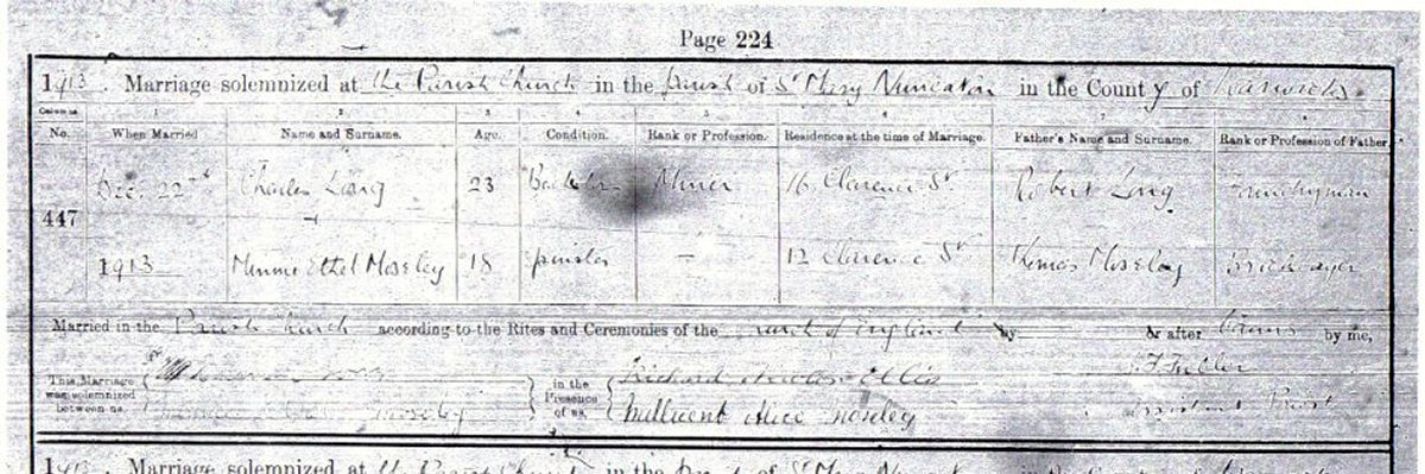 Page 224
1913. Marriage solemnized at the Parish Church in the parish of St Mary Nuneaton in the County of Warwick
Column 1 2 3 4 5 6 7 8
No. When Married Name and Surname. Age. Condition. Rank or Profession. Residence at the time of Marriage. Father's Name and Surname. Rank or Profession of Father
447
Dec. 22nd Charles Long 23 Bachelor Miner 16 Clarence St Robert Long
1913 Minnie Ethel Moseley 18 spinster — 12 Clarence St Thomas Moseley Bricklayer
Married in the Parish Church according to the Rites and Ceremonies of the Church of England by or after Banns by me,
This Marriage was solemnized between us, Moseley
in the Presence of us, Richard Ellis
Millicent Alice Moseley
Fuller
Assistant Priest
1913. Marriage solemnized at the Parish Church in the of St Mary